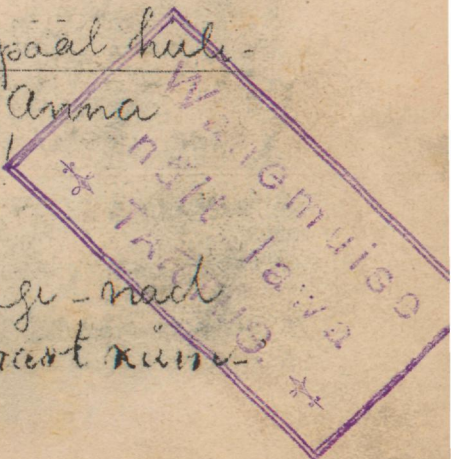 pääl huli-
Anna
!
gi-nad
rast nüm-
Wanemuise
näit lawa
* TARTUS. *